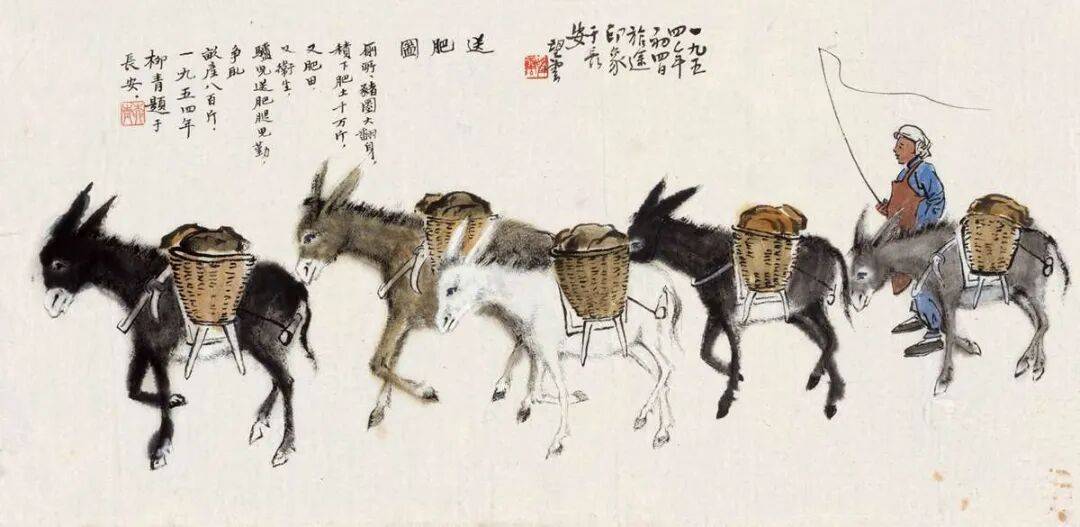 一九五
四年
旅途
印象
于長
安
望雲
送肥圖
廁所、豬圈大翻身，
積下肥土千万斤，
又肥田，
又衛生，
驢兒送肥腿兒勤，
爭取
畝產八百斤。
一九五四年
柳青題于
長安。